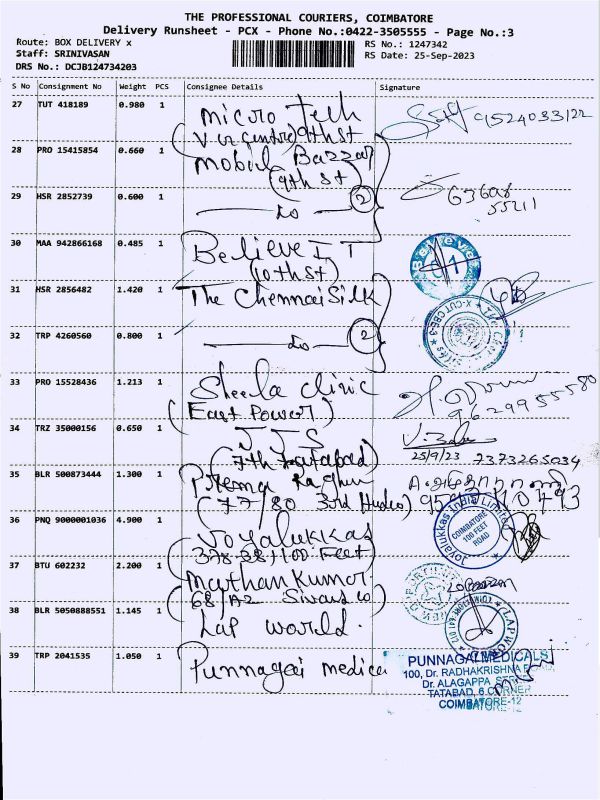 THE PROFESSIONAL COURIERS, COIMBATORE
Delivery Runsheet - PCX - Phone No.:0422-3505555 - Page No.:3
Route: BOX DELIVERY x
RS No.: 1247342
Staff: SRINIVASAN
RS Date: 25-Sep-2023
DRS No.: DCJB124734203
S No Consignment No Weight PCS Consignee Details Signature
27 TUT 418189 0.980 1 Micro Tech
9524033122
(V.V. Centre) 9th st
28 PRO 15415854 0.660 1 Mobil Bazzar
(9th st)
29 HSR 2852739 0.600 1 — do — 2
63608
55211
30 MAA 942866168 0.485 1 Believe IT
(10th st)
31 HSR 2856482 1.420 1 The Chennai Silk
32 TRP 4260560 0.800 1 — do — 2
33 PRO 15528436 1.213 1 Sheela Clinic
(East Power)
9629955580
34 TRZ 35000156 0.650 1 JJS
(7th Tatabad)
25/9/23 7373265034
35 BLR 500873444 1.300 1 Prema Raghu
(77/80 3rd Hudco)
36 PNQ 9000001036 4.900 1 Joyalukkas
Joyalukkas India Limited
COIMBATORE
100 FEET
ROAD
378-38, 100 Feet
37 BTU 602232 2.200 1 Maythan Kumar
(68, A2
38 BLR 5050888551 1.145 1 Lap World.
39 TRP 2041535 1.050 1 Punnagai medica
PUNNAGAI MEDICALS
100, Dr. RADHAKRISHNA
Dr. ALAGAPPA
TATABAD, 6 CORNER
COIMBATORE-12